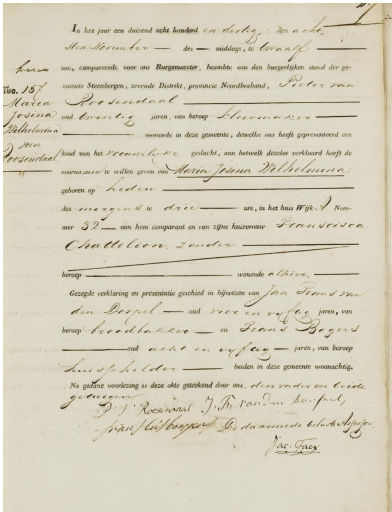 In het jaar een duizend acht honderd en dertig, den acht
sten November des middags, te twaalf
ure, compareerde voor ons Burgemeester, beambte van den burgerlijken stand der ge-
meente Steenbergen, zevende Distrikt, provincie Noordbraband, Pieter van
Roosendaal
oud twintig jaren, van beroep kleermaker
woonende in deze gemeente, dewelke ons heeft gepresenteerd een
kind van het vrouwelijke geslacht, aan hetwelk dezelve verklaard heeft de
voornamen te willen geven van Maria Josina Wilhelmina
geboren op heden
des morgens te drie ure, in het huis Wijk A Nom-
mer 32 van hem comparant en van zijne huisvrouw Francisca
Chattelion, zonder
beroep woonende alhier.
Gezegde verklaring en presentatie geschied in bijwezen van Jan Frans van
den Dorpel oud vier en vijftig jaren, van
beroep broodbakker en Frans Bogers
oud acht en vijftig jaren, van beroep
huisschilder beiden in deze gemeente woonachtig.
Na gedane voorlezing is deze akte geteekend door ons, den vader en beide
getuigen
No. 157
Maria
Josina
Wilhelmina
van
Roosendaal